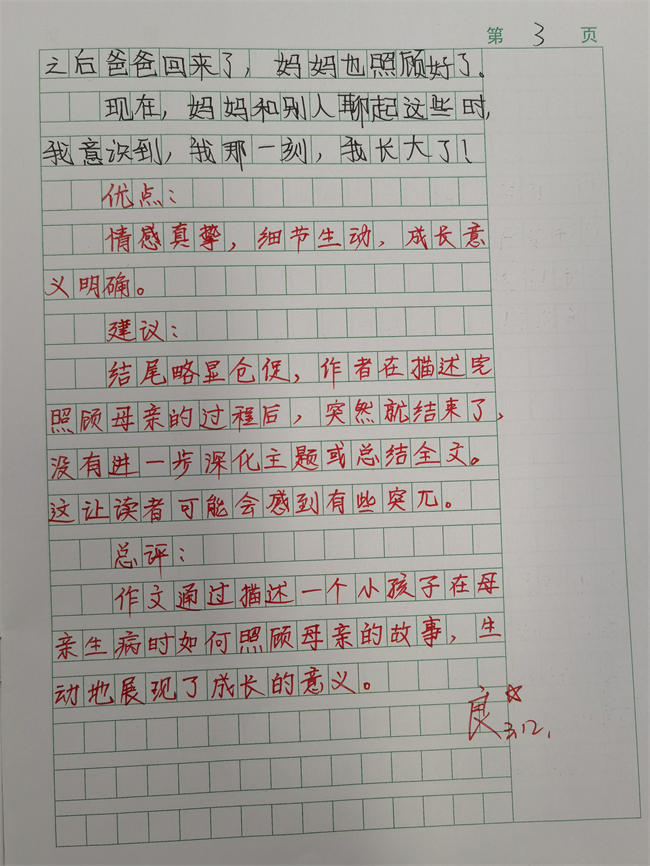 第 3 页
之后爸爸回来了，妈妈也照顾好了。
现在，妈妈和别人聊起这些时，
我意识到，我那一刻，我长大了！
优点：
情感真挚，细节生动，成长意
义明确。
建议：
结尾略显仓促，作者在描述完
照顾母亲的过程后，突然就结束了，
没有进一步深化主题或总结全文。
这让读者可能会感到有些突兀。
总评：
作文通过描述一个小孩子在母
亲生病时如何照顾母亲的故事，生
动地展现了成长的意义。
良☆
3.12.